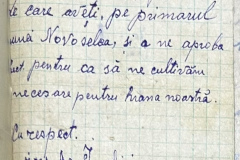 de care aveți, pe primarul
Novoselea, și a ne aproba
pentru ca să ne cultivăm
necesare pentru hrana noastră.
Cu respect.